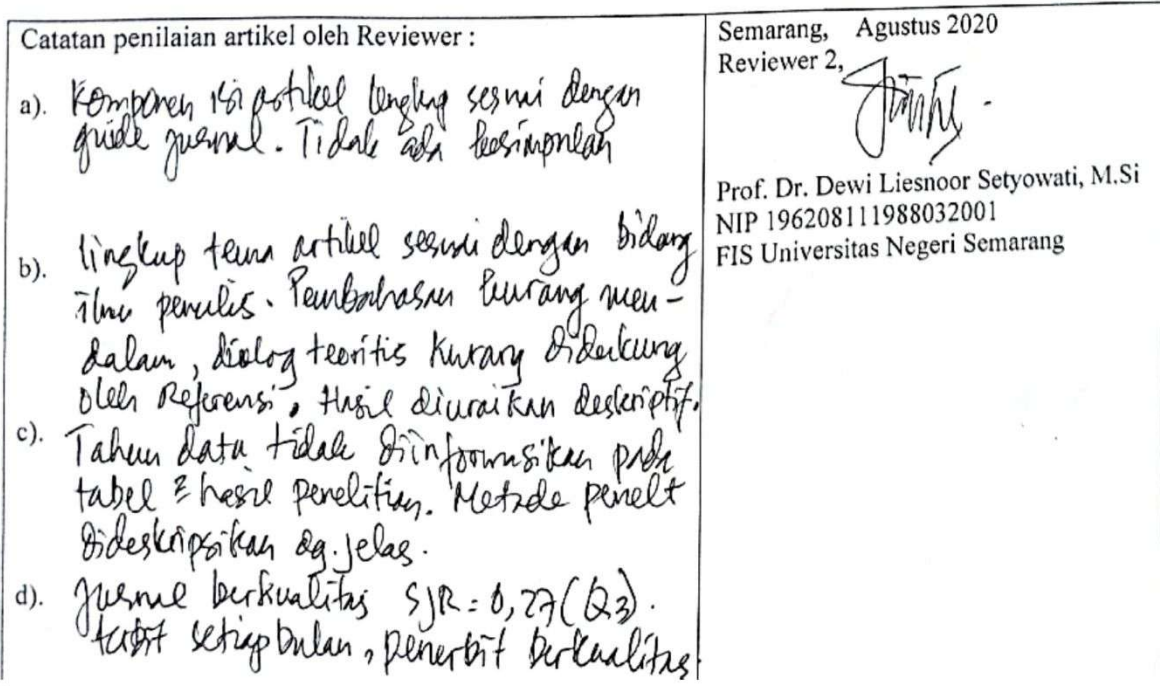 Catatan penilaian artikel oleh Reviewer :
a). Komponen isi artikel lengkap sesuai dengan
guide jurnal. Tidak ada kesimpulan
b). lingkup tema artikel sesuai dengan bidang
ilmu penulis. Pembahasan kurang men-
dalam, dialog teoritis kurang didukung
oleh Referensi. Hasil diuraikan deskriptif.
c). Tahun data tidak diinformasikan pada
tabel² hasil penelitian. Metode penelt
dideskripsikan dg. jelas.
d). Jurnal berkualitas SJR = 0,27 (Q3).
terbit setiap bulan, penerbit berkualitas.
Semarang, Agustus 2020
Reviewer 2,
Prof. Dr. Dewi Liesnoor Setyowati, M.Si
NIP 196208111988032001
FIS Universitas Negeri Semarang